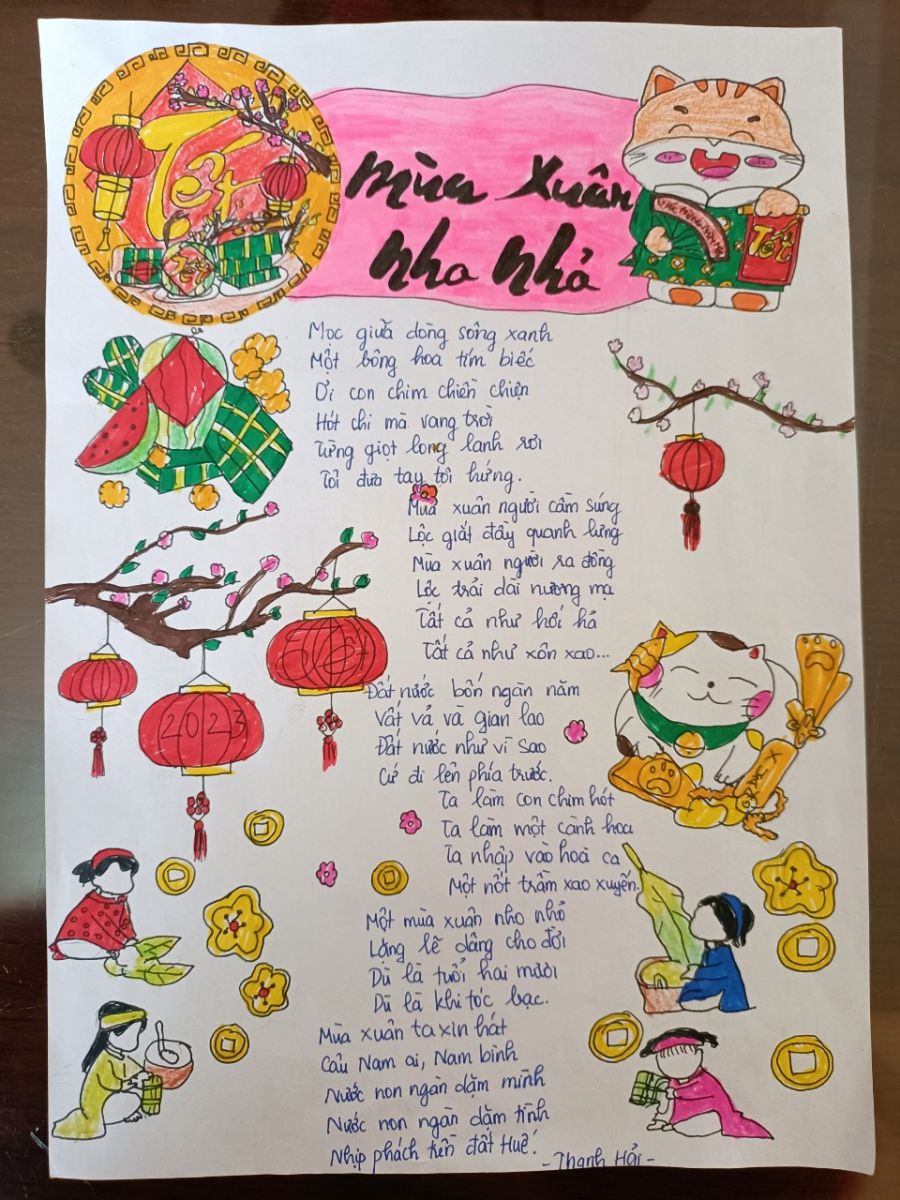 Tết
Tết
Mùa Xuân
Nho Nhỏ
Tết
Mọc giữa dòng sông xanh
Một bông hoa tím biếc
Ơi con chim chiền chiện
Hót chi mà vang trời
Từng giọt long lanh rơi
Tôi đưa tay tôi hứng.
Mùa xuân người cầm súng
Lộc giắt đầy quanh lưng
Mùa xuân người ra đồng
Lộc trải dài nương mạ
Tất cả như hối hả
Tất cả như xôn xao...
Đất nước bốn ngàn năm
Vất vả và gian lao
Đất nước như vì sao
Cứ đi lên phía trước.
2023
Ta làm con chim hót
Ta làm một cành hoa
Ta nhập vào hoà ca
Một nốt trầm xao xuyến.
Một mùa xuân nho nhỏ
Lặng lẽ dâng cho đời
Dù là tuổi hai mươi
Dù là khi tóc bạc.
Mùa xuân ta xin hát
Câu Nam ai, Nam bình
Nước non ngàn dặm mình
Nước non ngàn dặm tình
Nhịp phách tiền đất Huế.
- Thanh Hải -